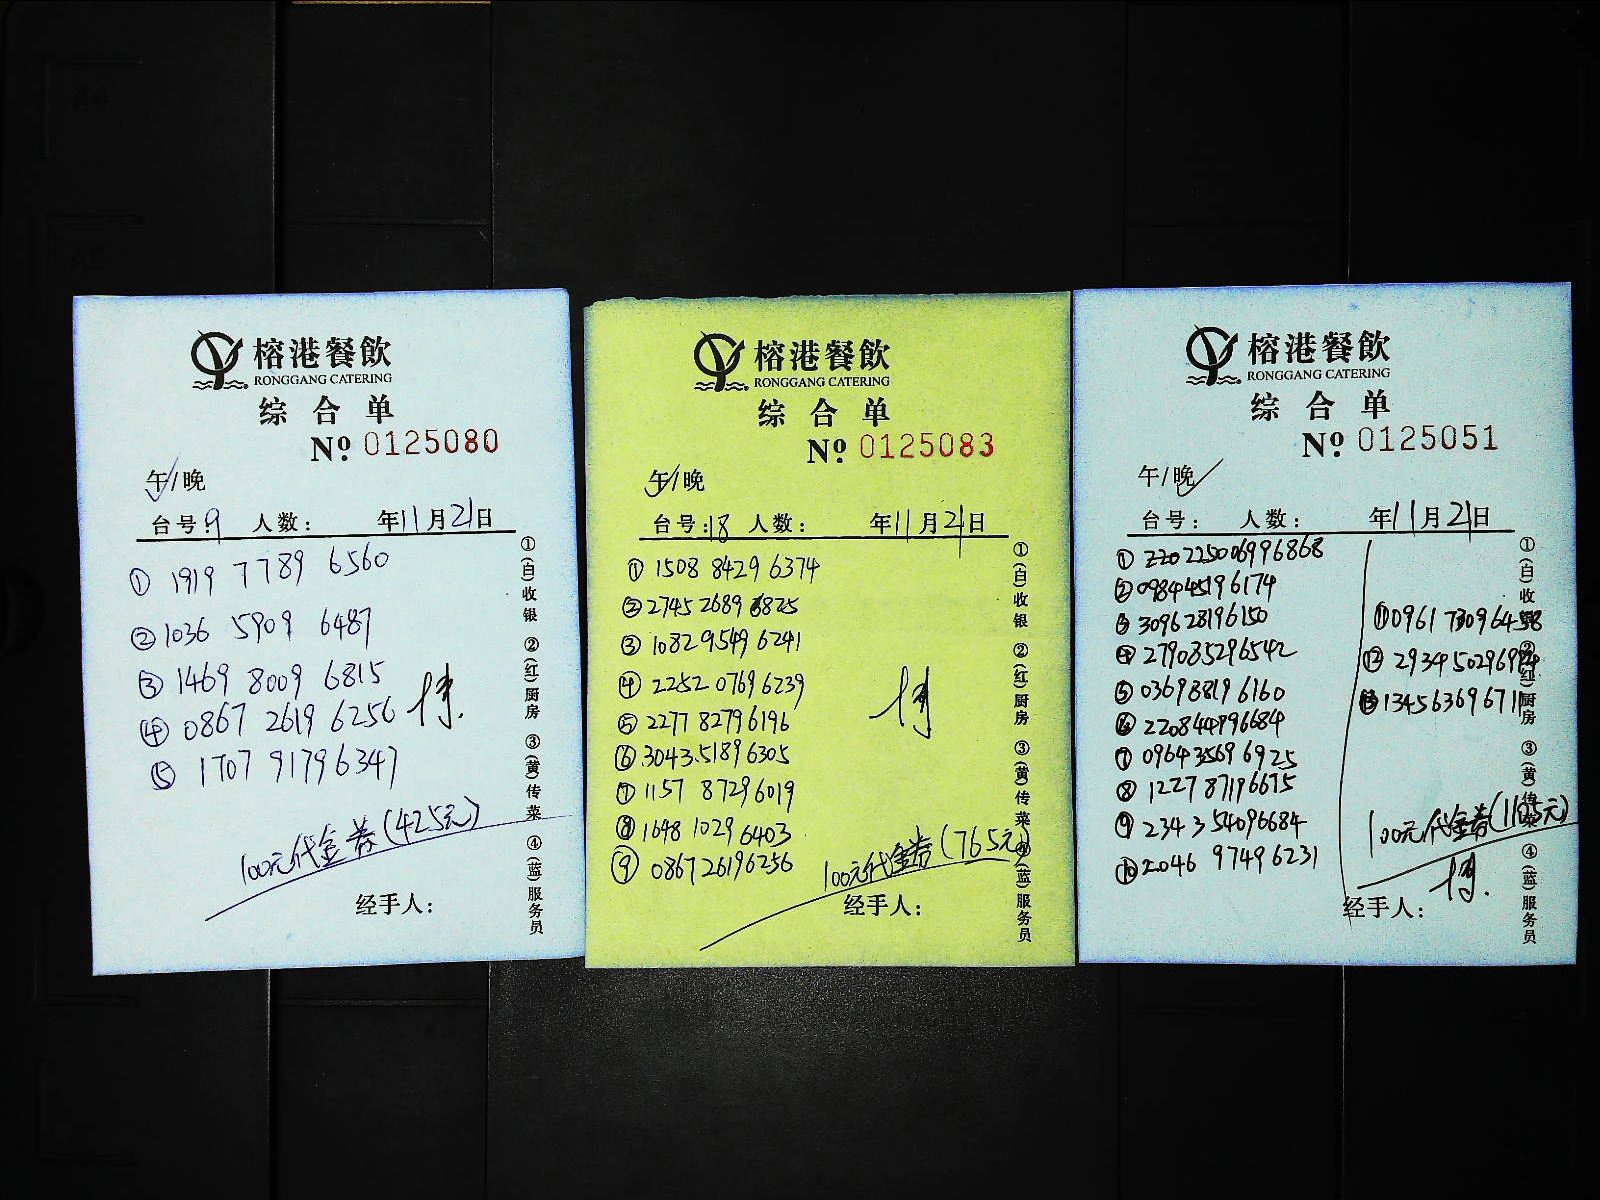 榕港餐飲
RONGGANG CATERING
综合单
№ 0125080
午/晚
台号:9 人数: 年11月21日
① 1919 7789 6560
② 1036 5909 6487
③ 1469 8009 6815
④ 0867 2619 6256
⑤ 1707 9179 6347
100元代金券(425元)
经手人:
①(白)收银 ②(红)厨房 ③(黄)传菜 ④(蓝)服务员
榕港餐飲
RONGGANG CATERING
综合单
№ 0125083
午/晚
台号:18 人数: 年11月21日
① 1508 8429 6374
② 2745 2689 6825
③ 1082 9549 6241
④ 2252 0769 6239
⑤ 2277 8279 6196
⑥ 3043 5189 6305
⑦ 1157 8729 6019
⑧ 1648 1029 6403
⑨ 0867 2619 6256
100元代金券(765元)
经手人:
①(白)收银 ②(红)厨房 ③(黄)传菜 ④(蓝)服务员
榕港餐飲
RONGGANG CATERING
综合单
№ 0125051
午/晚
台号: 人数: 年11月21日
① 220225006996868
② 098445196174
③ 309628196150
④ 279085296542
⑤ 036988196160
⑥ 220844996684
⑦ 096435696925
⑧ 122787196675
⑨ 234354096684
⑩ 2046 97496231
⑪ 0961 73096458
⑫ 2934 5029
⑬ 134563696711
100元代金券(1105元)
经手人:
①(白)收银 ②(红)厨房 ③(黄)传菜 ④(蓝)服务员